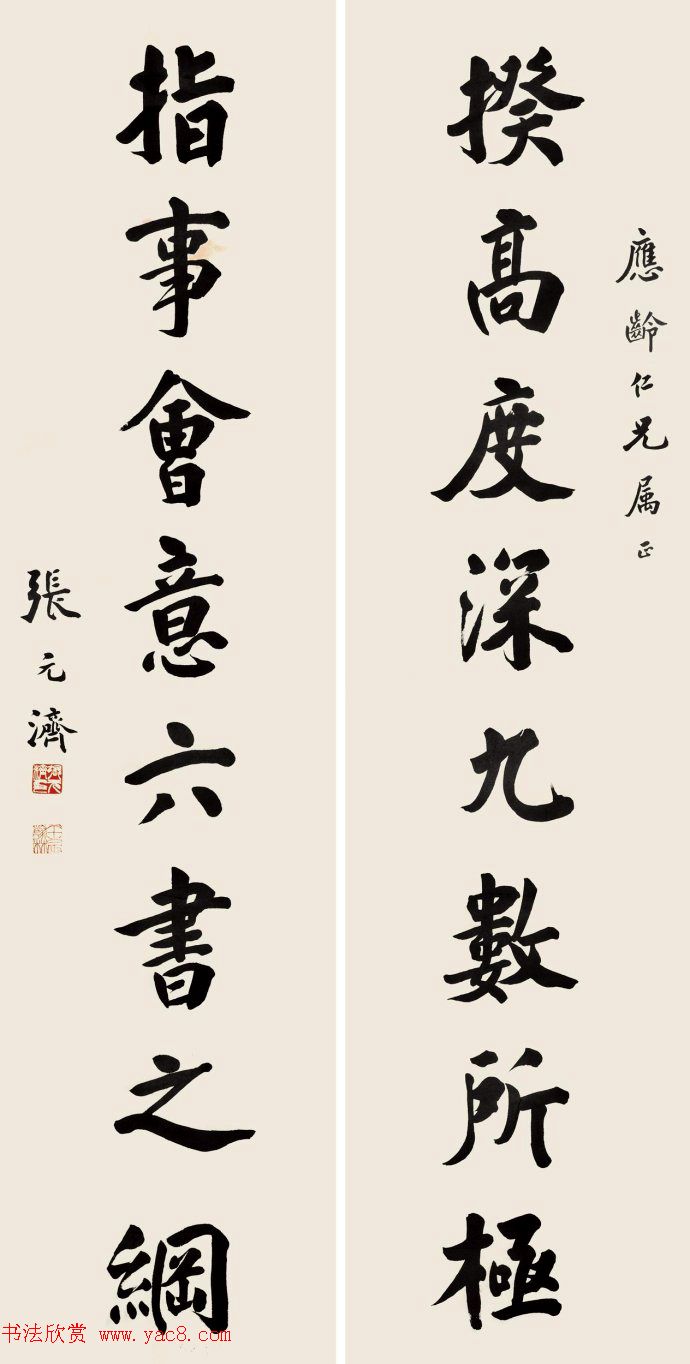 應齡仁兄属正
揆高度深九數所極
指事會意六書之綱
張元濟
书法欣赏 www.yac8.com